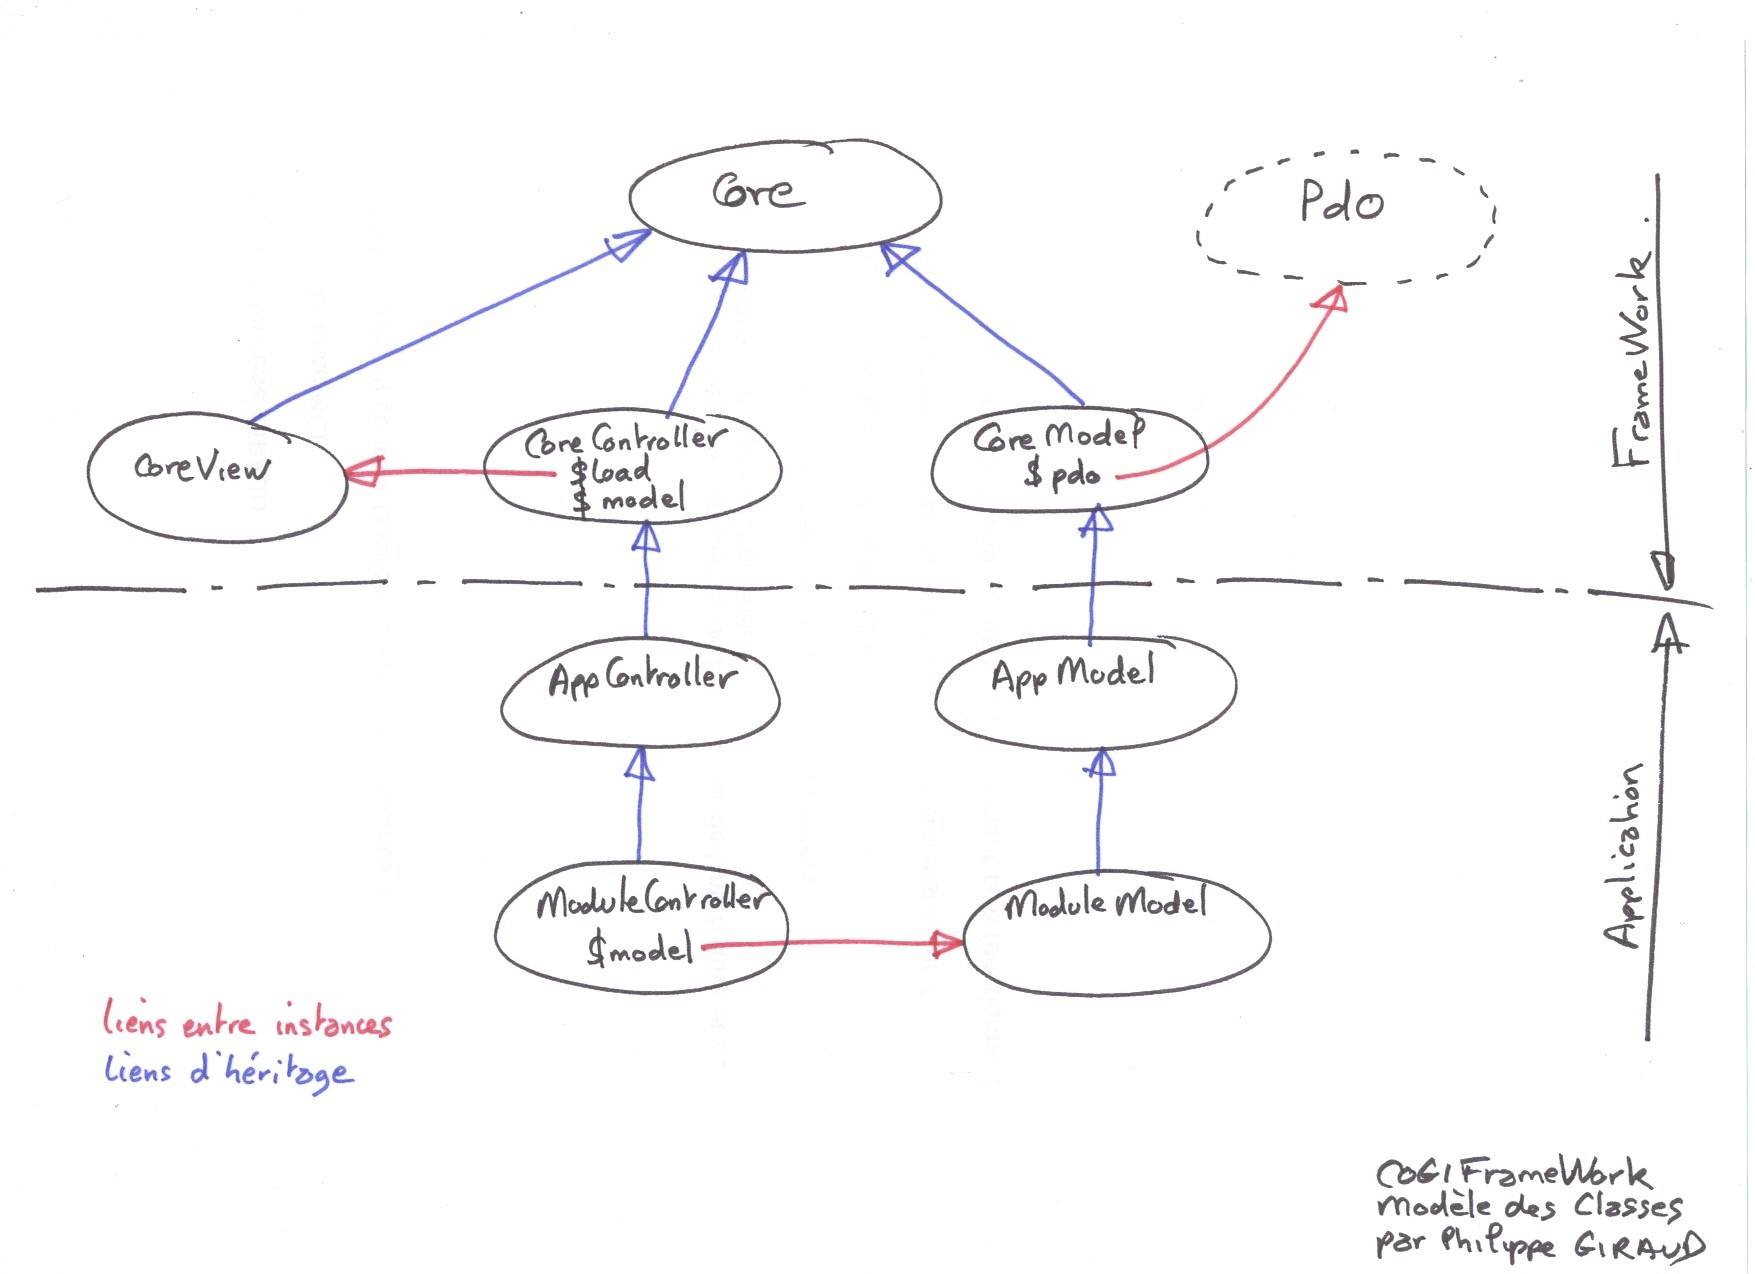 Core
Pdo
FrameWork.
CoreView
CoreController
$load
$model
CoreModel
$pdo
AppController
AppModel
Application
ModuleController
$model
ModuleModel
liens entre instances
liens d'héritage
COGIFrameWork
Modèle des Classes
par Philippe GIRAUD